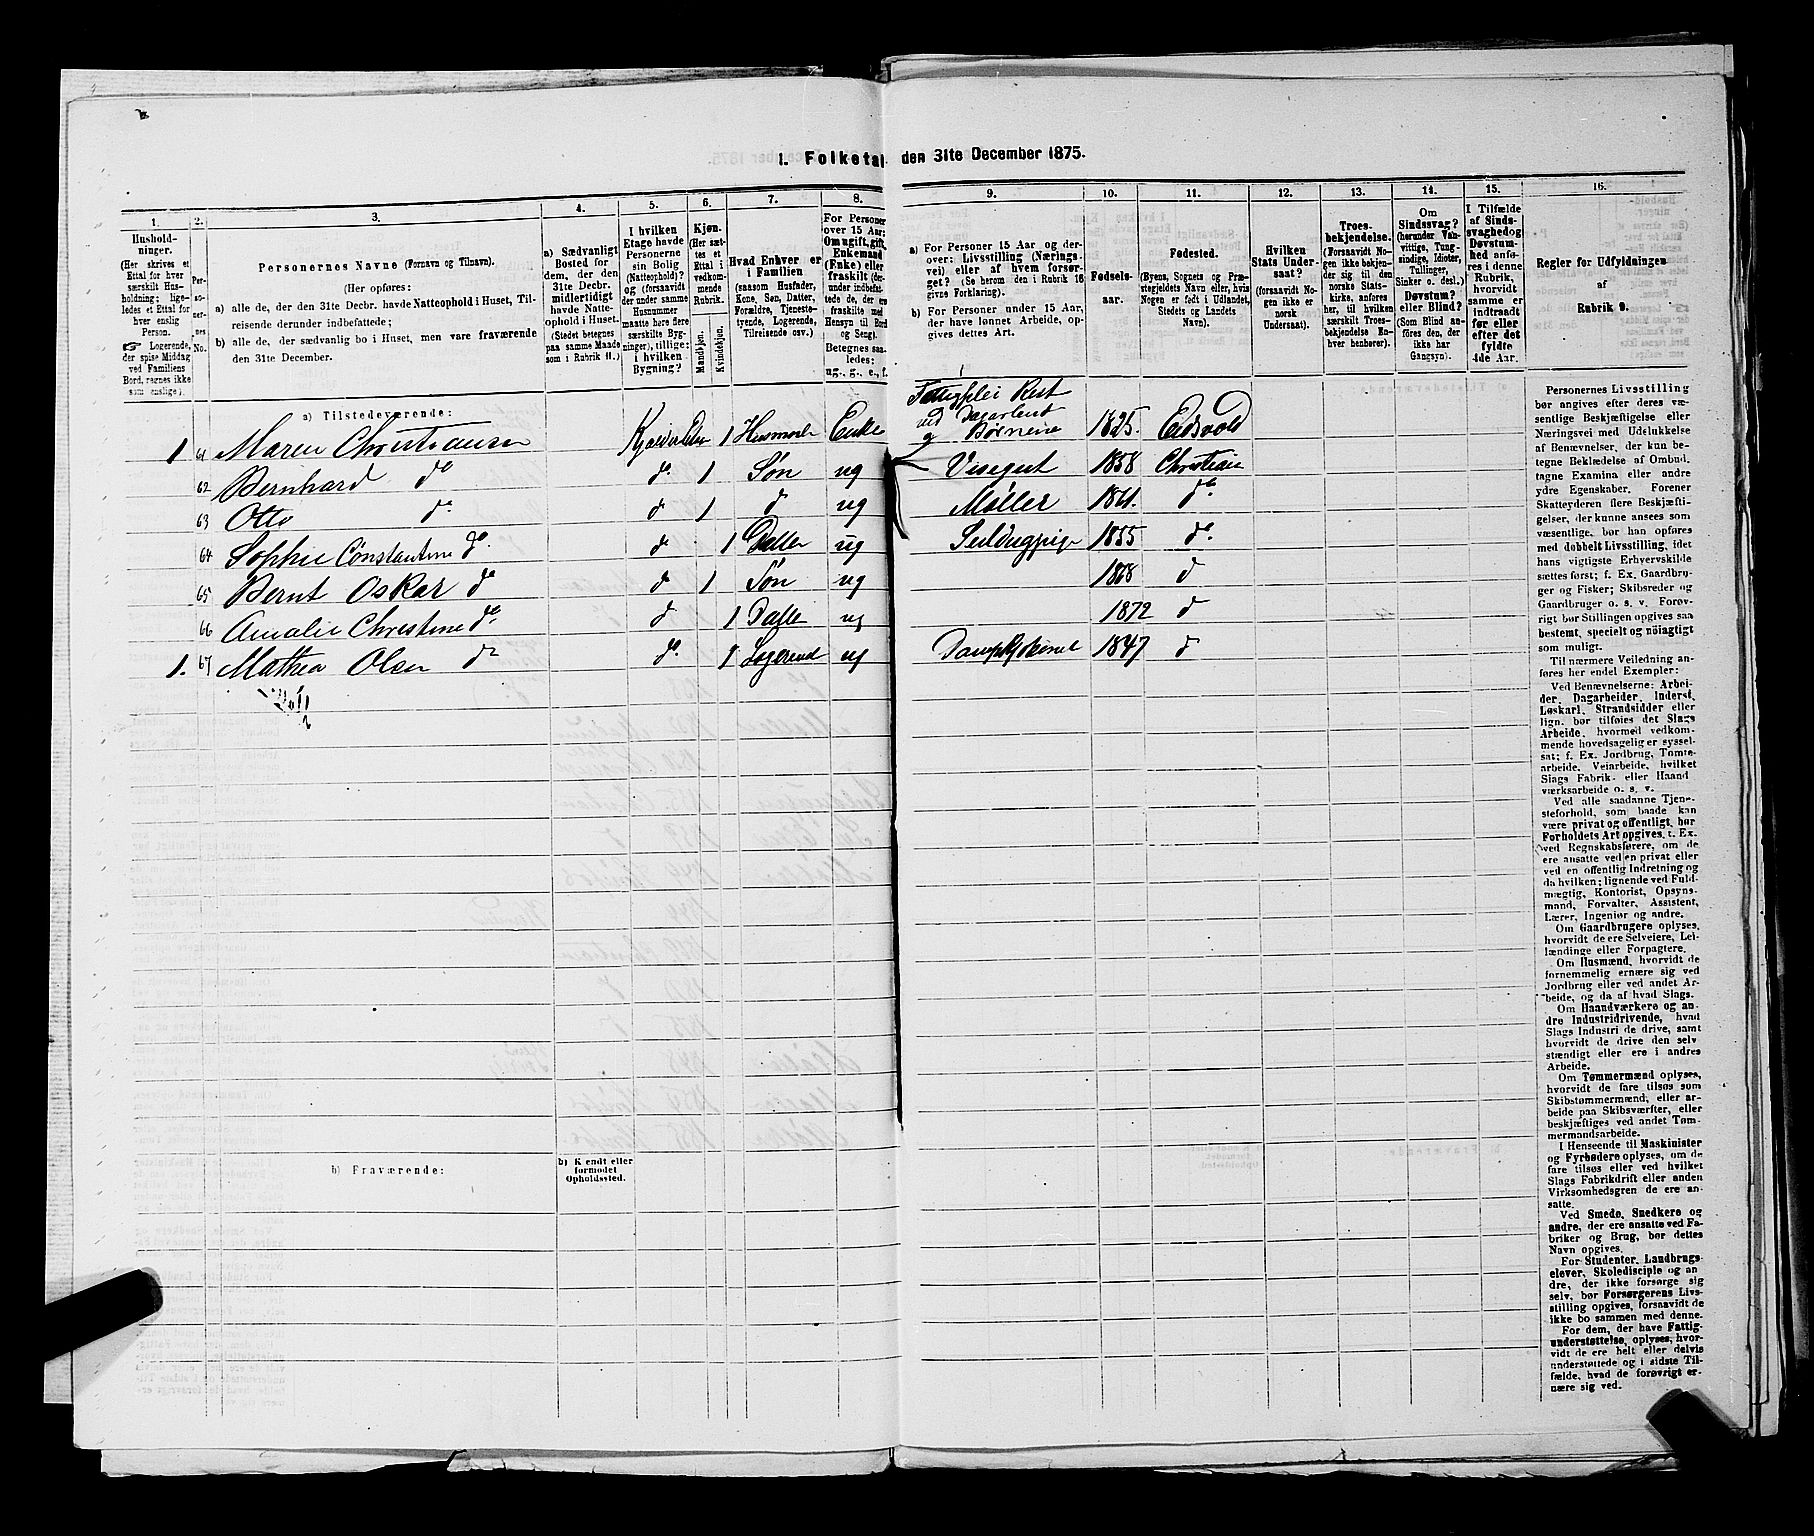 1. Folketal den 31te December 1875.
1. 2. 3. 4. 5. 6. 7. 8. 9. 10. 11. 12. 13. 14. 15. 16.
Hushold-
ninger.
(Her skrives et
Ettal for hver
særskilt Hus-
holdning; lige-
ledes et Ettal for
hver enslig
Person.
☞ Logerende,
der spise Middag
ved Familiens
Bord, regnes ikke
som enslige).
Per-
so-
ner-
nes
No.
Personernes Navne (Fornavn og Tilnavn).
(Her opføres:
a) alle de, der den 31te Decbr. havde Natteophold i Huset, Til-
reisende derunder indbefattede;
b) alle de, der sædvanlig bo i Huset, men vare fraværende
den 31te December.
a) Sædvanligt
Bosted for
dem, der den
31te Decbr.
midlertidigt
havde Natte-
ophold i Huset.
(Stedet betegnes
paa samme Maade
som i Rubrik 11.)
I hvilken
Etage havde
Personerne
sin Bolig
(Natteophold)?
og (forsaavidt
der under samme
Husnummer
maatte høre flere
særskilte Byg-
ninger), tillige:
i hvilken
Bygning?
Kjøn.
(Her sæt-
tes et
Ettal i
vedkom-
mende
Rubrik.
Mandkjøn.
Kvindekjøn.
Hvad Enhver er
i Familien
(saasom Husfader,
Kone, Søn, Datter,
Forældre, Tjeneste-
tyende, Logerende,
Tilreisende osv.)
For Personer
over 15 Aar:
Om ugift, gift,
Enkemand
(Enke) eller
fraskilt (der-
under indbefat-
tede de, der ere
fraskilte med
Hensyn til Bord
og Seng).
Betegnes saa-
ledes:
ug., g., e., f.
a) For Personer 15 Aar og der-
over: Livsstilling (Nærings-
vei) eller af hvem forsør-
get (Se herom den i Rubrik 16
givne Forklaring).
b) For Personer under 15 Aar,
der have lønnet Arbeide, op-
gives dettes Art.
Fødsels-
aar.
Fødested.
(Byens, Sognets og Præ-
stegjeldets Navn eller, hvis
Nogen er født i Udlandet,
Stedets og Landets
Navn).
Hvilken
Stats Under-
saat?
(forsaavidt No-
gen ikke er
norsk
Undersaat).
Troes-
bekjendelse.
(Forsaavidt No-
gen ikke bekjen-
der sig til den
norske Stats-
kirke, anføres
her, til hvilken
særskilt Troes-
bekjendelse En-
hver henhører).
Om
Sindssvag?
(herunder Van-
vittige, Tung-
sindige, Idioter,
Tullinger,
Sinker o. desl.)
Døvstum?
eller Blind?
(Som Blind an-
føres den, der
ikke har
Gangsyn).
I Tilfælde
af Sinds-
svaghed og
Døvstum-
hed anfø-
res i denne
Rubrik,
hvorvidt
samme er
indtraadt
før eller
efter det
fyldte
4de Aar.
Regler for Udfyldningen
af
Rubrik 9.
a) Tilstedeværende:
1 61 Maren Christiansen Husmoder Enke 1825. Eidsvold
62 Bernhard do do. 1 Søn ug Visergut 1858 Christian
63 Otto do d 1 d ug Møller 1861. do
64 Sophie Constantine do. d 1 Datter ug 1855 do.
65 Bernt Oskar do d 1 Søn ug 1868 d
66 Amalie Christine do d 1 Datter ug 1872 d
1. 67 Mathea Olsen do. 1 Logerend ug 1847 d
b) Fraværende:
b) Kendt eller
formodet
Opholdssted.
Personernes Livsstilling
bør angives efter deres væ-
sentlige Beskjæftigelse eller
Næringsvei med Udelukkelse
af Benævnelser, der kun be-
tegne Beklædelse af Ombud,
tagne Examina eller andre
ydre Egenskaber. Forener
Skatteyderen flere Beskjæfti-
gelser, der kunne ansees som
væsentlige, bør han opføres
med dobbelt Livsstilling, idet
hans vigtigste Erhvervskilde
sættes først; f. Ex. Gaardbru-
ger og Fisker; Skibsreder og
Gaardbruger o. s. v. Forøv-
rigt bør Stillingen opgives saa
bestemt, specielt og nøiagtigt
som muligt.
Til nærmere Veiledning an-
føres her endel Exempler:
Ved Benævnelserne: Arbei-
der, Dagarbeider, Inderst,
Løskarl, Strandsidder eller
lign. bør tilføies det Slags
Arbeide, hvormed vedkom-
mende hovedsagelig er syssel-
sat; f. Ex. Jordbrug, Tomte-
arbeide, Veiarbeide, hvilket
Slags Fabrik- eller Haand
værksarbeide o. s. v.
Ved alle saadanne Tjen-
steforhold, som baade kan
være privat og offentligt, bør
Forholdets Art opgives, t. Ex.
ved Regnskabsførere, om de
ere ansatte ved en privat eller
ved en offentlig Indretning og
da hvilken; lignende ved Fuld-
mægtig, Kontorist, Opsyns-
mand, Forvalter, Assistent,
Lærer, Ingeniør og andre.
Om Gaardbrugere oplyses,
hvorvidt de ere Selveiere, Lei-
lændinge eller Forpagtere.
Om Husmænd, hvorvidt de
fornemmelig ernære sig ved
Jordbrug eller ved andet Ar-
beide, og da af hvad Slags.
Om Haandværkere og an-
dre Industridrivende, hvad
Slags Industri de drive, samt
hvorvidt de drive den selv
stændigt eller ere i andres
Arbeide.
Om Tømmermænd oplyses,
hvorvidt de fare tilsøs som
Skibstømmermænd, eller ar-
beide paa Skibsværfter, eller
beskjæftiges ved andet Tøm-
mermandsarbeide.
I Henseende til Maskinister
og Fyrbødere oplyses, om de
fare tilsøs eller ved hvilket
Slags Fabrikdrift eller anden
Virksomhedsgren de ere an-
satte.
Ved Smede, Snedkere og
andre, der ere ansatte ved Fa-
briker og Brug, bør dettes
Navn opgives.
For Studenter, Landbrugs-
elever, Skoledisciple og an-
dre, der ikke forsørge sig
selv, bør Forsørgerens Livs-
stilling opgives, forsaavidt de
ikke bo sammen med denne.
For dem, der have Fattig-
understøttelse, oplyses, hvor-
vidt de ere helt eller delvis
understøttede og i sidste Til-
fælde, hvad de forøvrigt er-
nære sig ved.